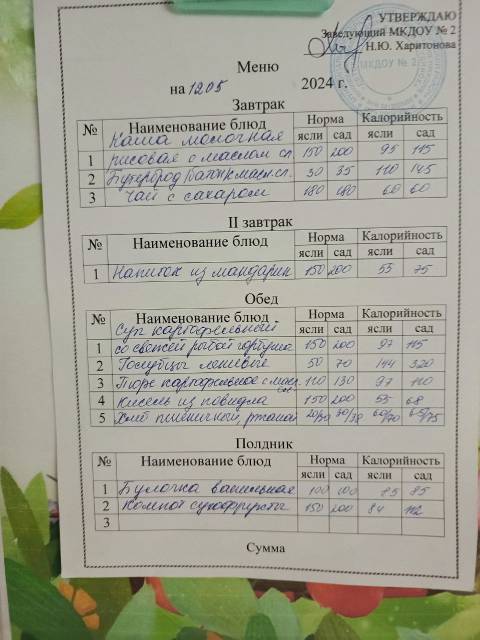 УТВЕРЖДАЮ
Заведующий МКДОУ № 2
Н.Ю. Харитонова
МКДОУ № 2
Меню
на 1205 2024 г.
Завтрак
№ Наименование блюд Норма Калорийность
ясли сад ясли сад
Каша молочная
1 рисовая с маслом сл. 150 200 95 115
2 Бутерброд Батон масл сл. 30 35 110 145
3 Чай с сахаром 180 180 60 60
II завтрак
№ Наименование блюд Норма Калорийность
ясли сад ясли сад
1 Напиток из мандарин 150 200 55 75
Обед
№ Наименование блюд Норма Калорийность
ясли сад ясли сад
Суп картофельный
1 со свежей рыбой горбуша 150 200 97 115
2 Голубцы ленивые 50 70 144 320
3 Пюре картофельное с масл. 110 130 97 110
4 Кисель из повидла 150 200 55 68
5 Хлеб пшеничный, ржаной 60/70 65/75
Полдник
№ Наименование блюд Норма Калорийность
ясли сад ясли сад
1 Булочка ванильная 100 100 85 85
2 Компот сухофрукты 150 200 84 112
3
Сумма